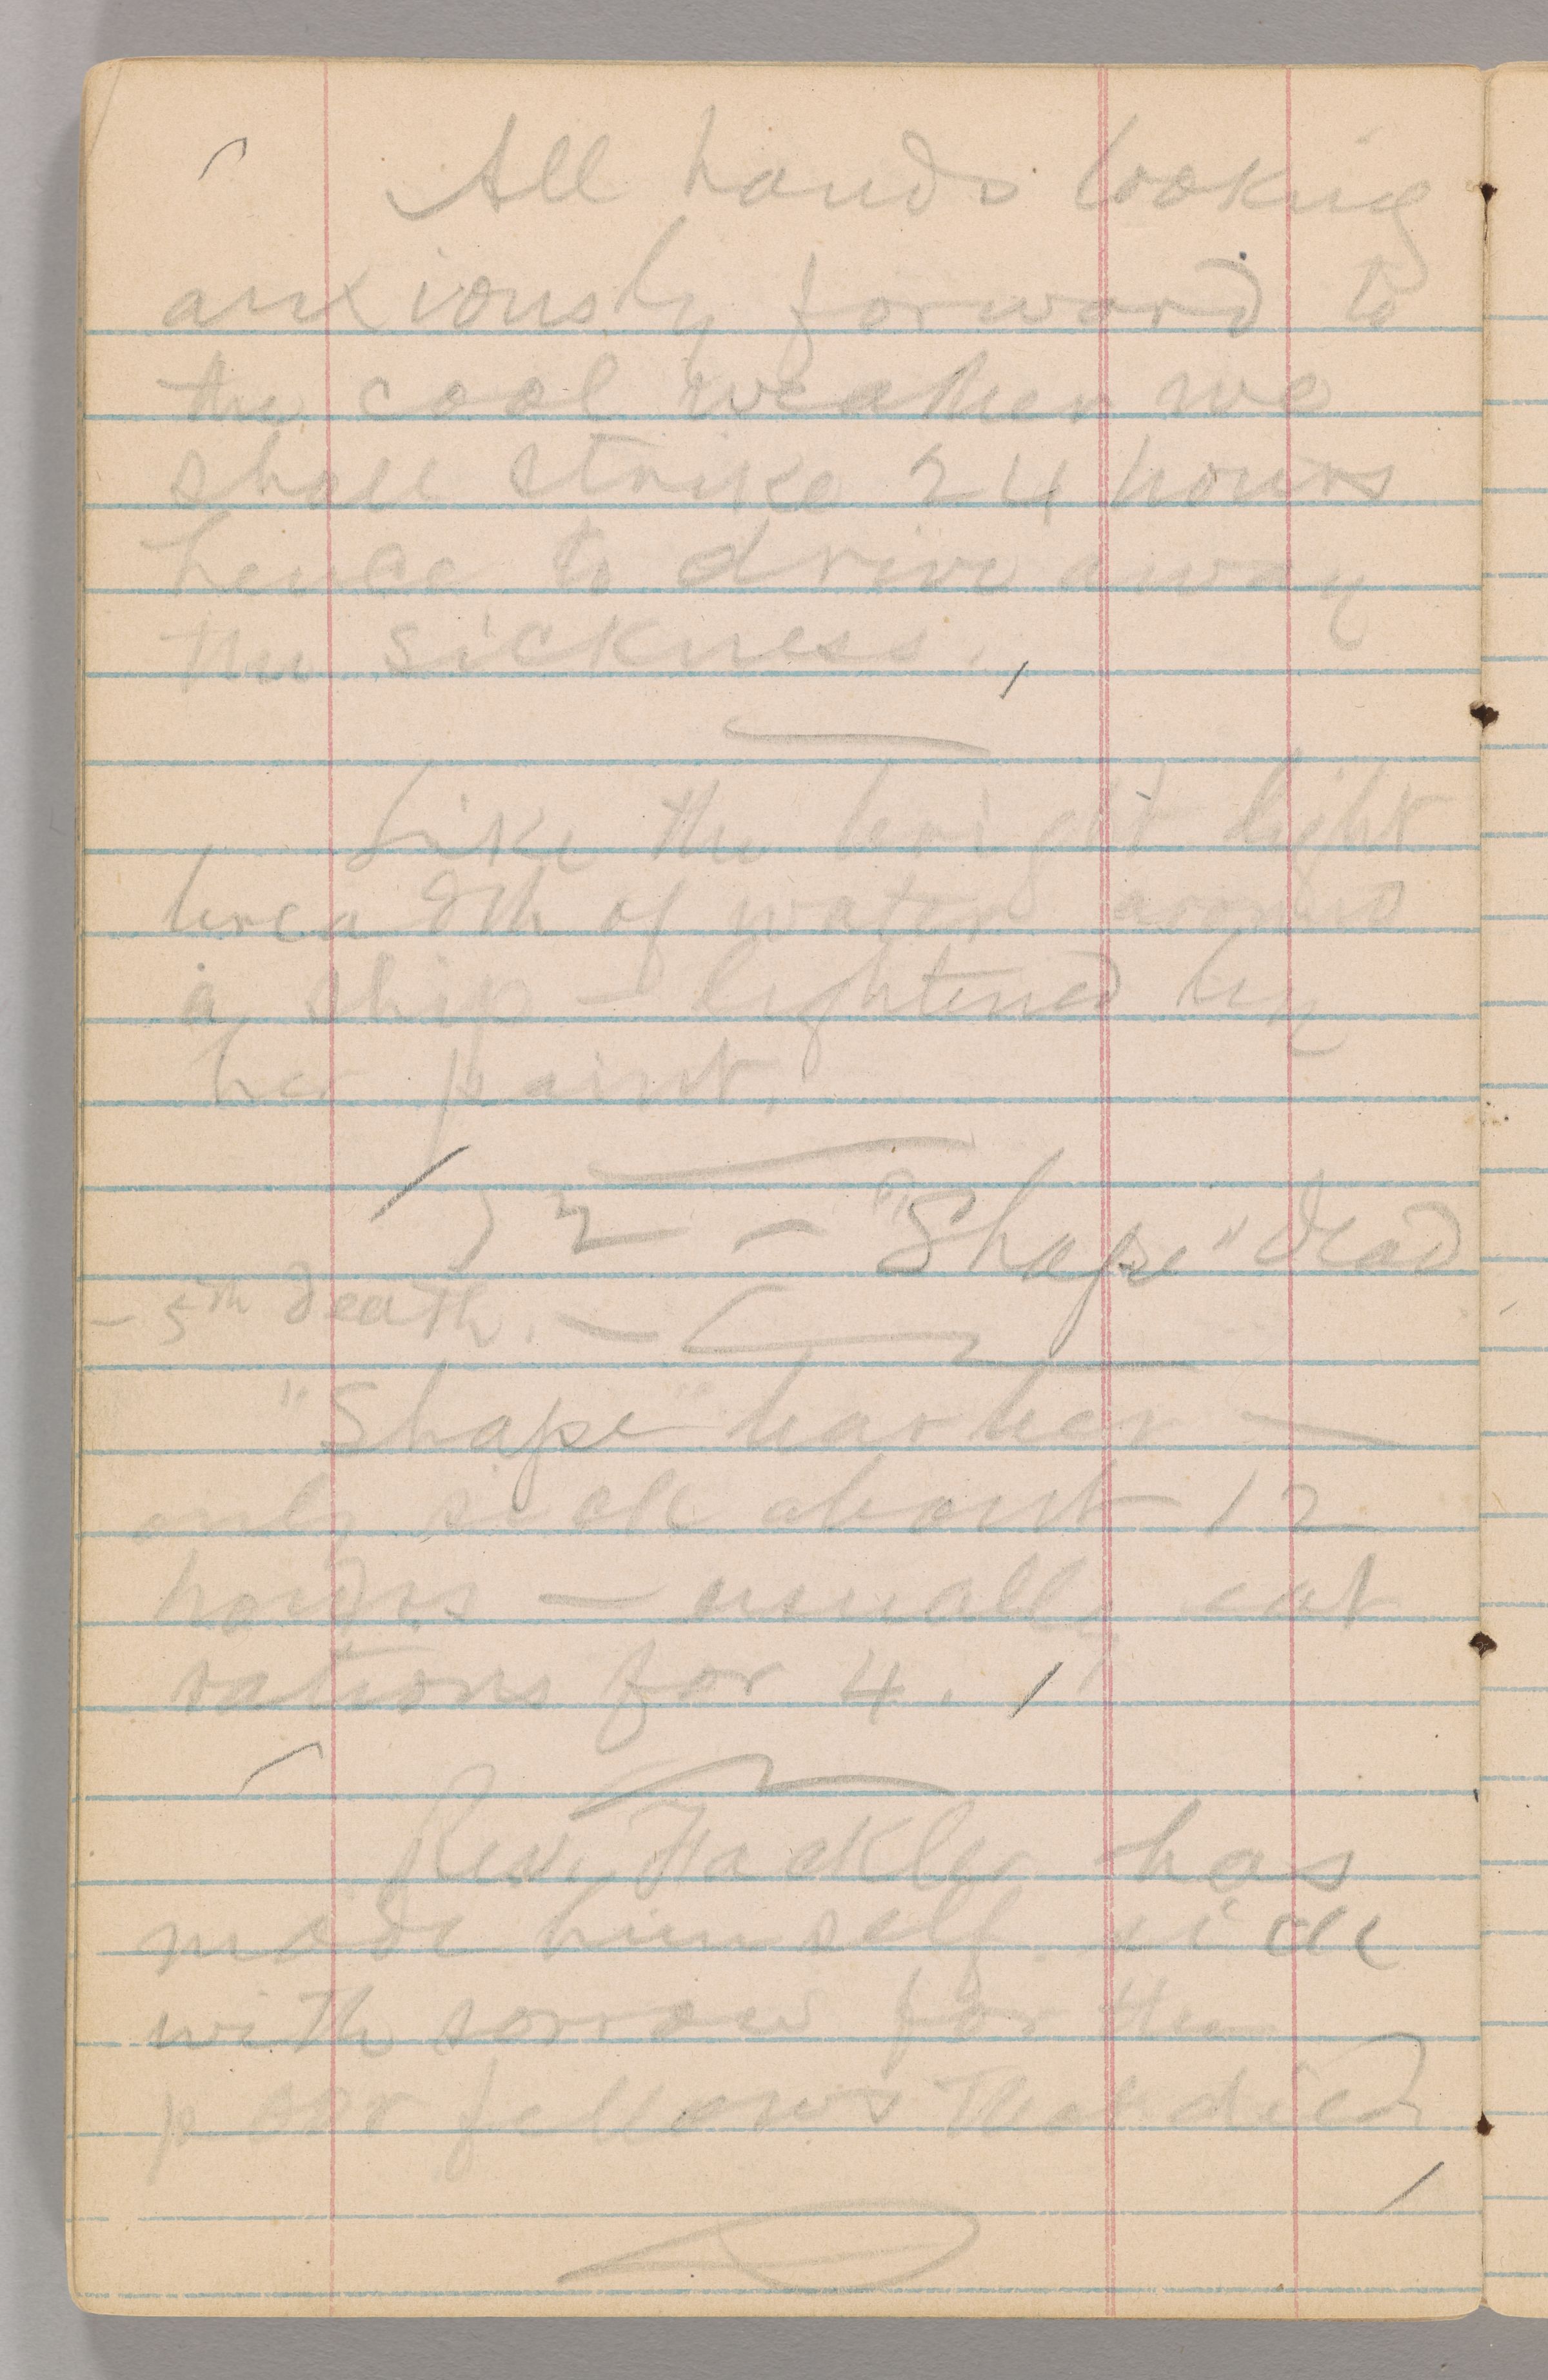 All hands looking
anxiously forward to
the cool weather we
shall strike 24 hours
hence to drive away
the sickness.
Like the bright light
breadth of water around
a ship — lightened by
her paint.
2 — "Shape" dead
— 5th death. —
"Shape" barber —
only sick about 12
hours — usually eat
rations for 4.
Rev. Fackler has
made himself sick
with sorrow for the
poor fellows that died